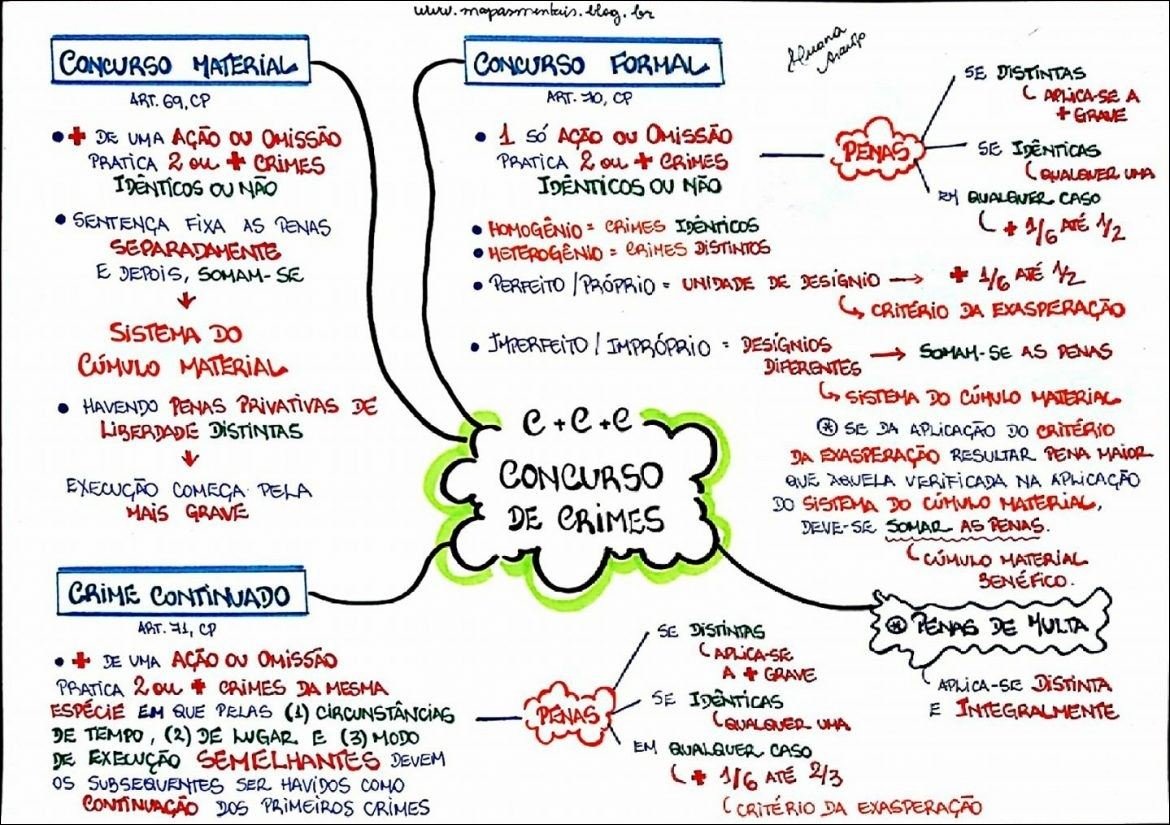 www.mapasmentais.blog.br
CONCURSO MATERIAL
ART. 69, CP
• + DE UMA AÇÃO OU OMISSÃO
PRATICA 2 ou + CRIMES
IDÊNTICOS OU NÃO
• SENTENÇA FIXA AS PENAS
SEPARADAMENTE
E DEPOIS, SOMAM-SE
↓
SISTEMA DO
CÚMULO MATERIAL
• HAVENDO PENAS PRIVATIVAS DE
LIBERDADE DISTINTAS
↓
EXECUÇÃO COMEÇA PELA
MAIS GRAVE
CONCURSO FORMAL
ART. 70, CP
• 1 SÓ AÇÃO OU OMISSÃO
PRATICA 2 ou + CRIMES
IDÊNTICOS OU NÃO
PENAS
SE DISTINTAS
APLICA-SE A
+ GRAVE
SE IDÊNTICAS
QUALQUER UMA
EM QUALQUER CASO
+ 1/6 ATÉ 1/2
• HOMOGÊNIO = CRIMES IDÊNTICOS
• HETEROGÊNIO = CRIMES DISTINTOS
• PERFEITO / PRÓPRIO = UNIDADE DE DESÍGNIO → + 1/6 ATÉ 1/2
CRITÉRIO DA EXASPERAÇÃO
• IMPERFEITO / IMPRÓPRIO = DESÍGNIOS
DIFERENTES → SOMAM-SE AS PENAS
SISTEMA DO CÚMULO MATERIAL
* SE DA APLICAÇÃO DO CRITÉRIO
DA EXASPERAÇÃO RESULTAR PENA MAIOR
QUE AQUELA VERIFICADA NA APLICAÇÃO
DO SISTEMA DO CÚMULO MATERIAL,
DEVE-SE SOMAR AS PENAS.
CÚMULO MATERIAL
BENÉFICO.
C + C + C
CONCURSO
DE CRIMES
CRIME CONTINUADO
ART. 71, CP
• + DE UMA AÇÃO OU OMISSÃO
PRATICA 2 ou + CRIMES DA MESMA
ESPÉCIE EM QUE PELAS (1) CIRCUNSTÂNCIAS
DE TEMPO, (2) DE LUGAR E (3) MODO
DE EXECUÇÃO SEMELHANTES DEVEM
OS SUBSEQUENTES SER HAVIDOS COMO
CONTINUAÇÃO DOS PRIMEIROS CRIMES
PENAS
SE DISTINTAS
APLICA-SE
A + GRAVE
SE IDÊNTICAS
QUALQUER UMA
EM QUALQUER CASO
+ 1/6 ATÉ 2/3
CRITÉRIO DA EXASPERAÇÃO
* PENAS DE MULTA
APLICA-SE DISTINTA
E INTEGRALMENTE